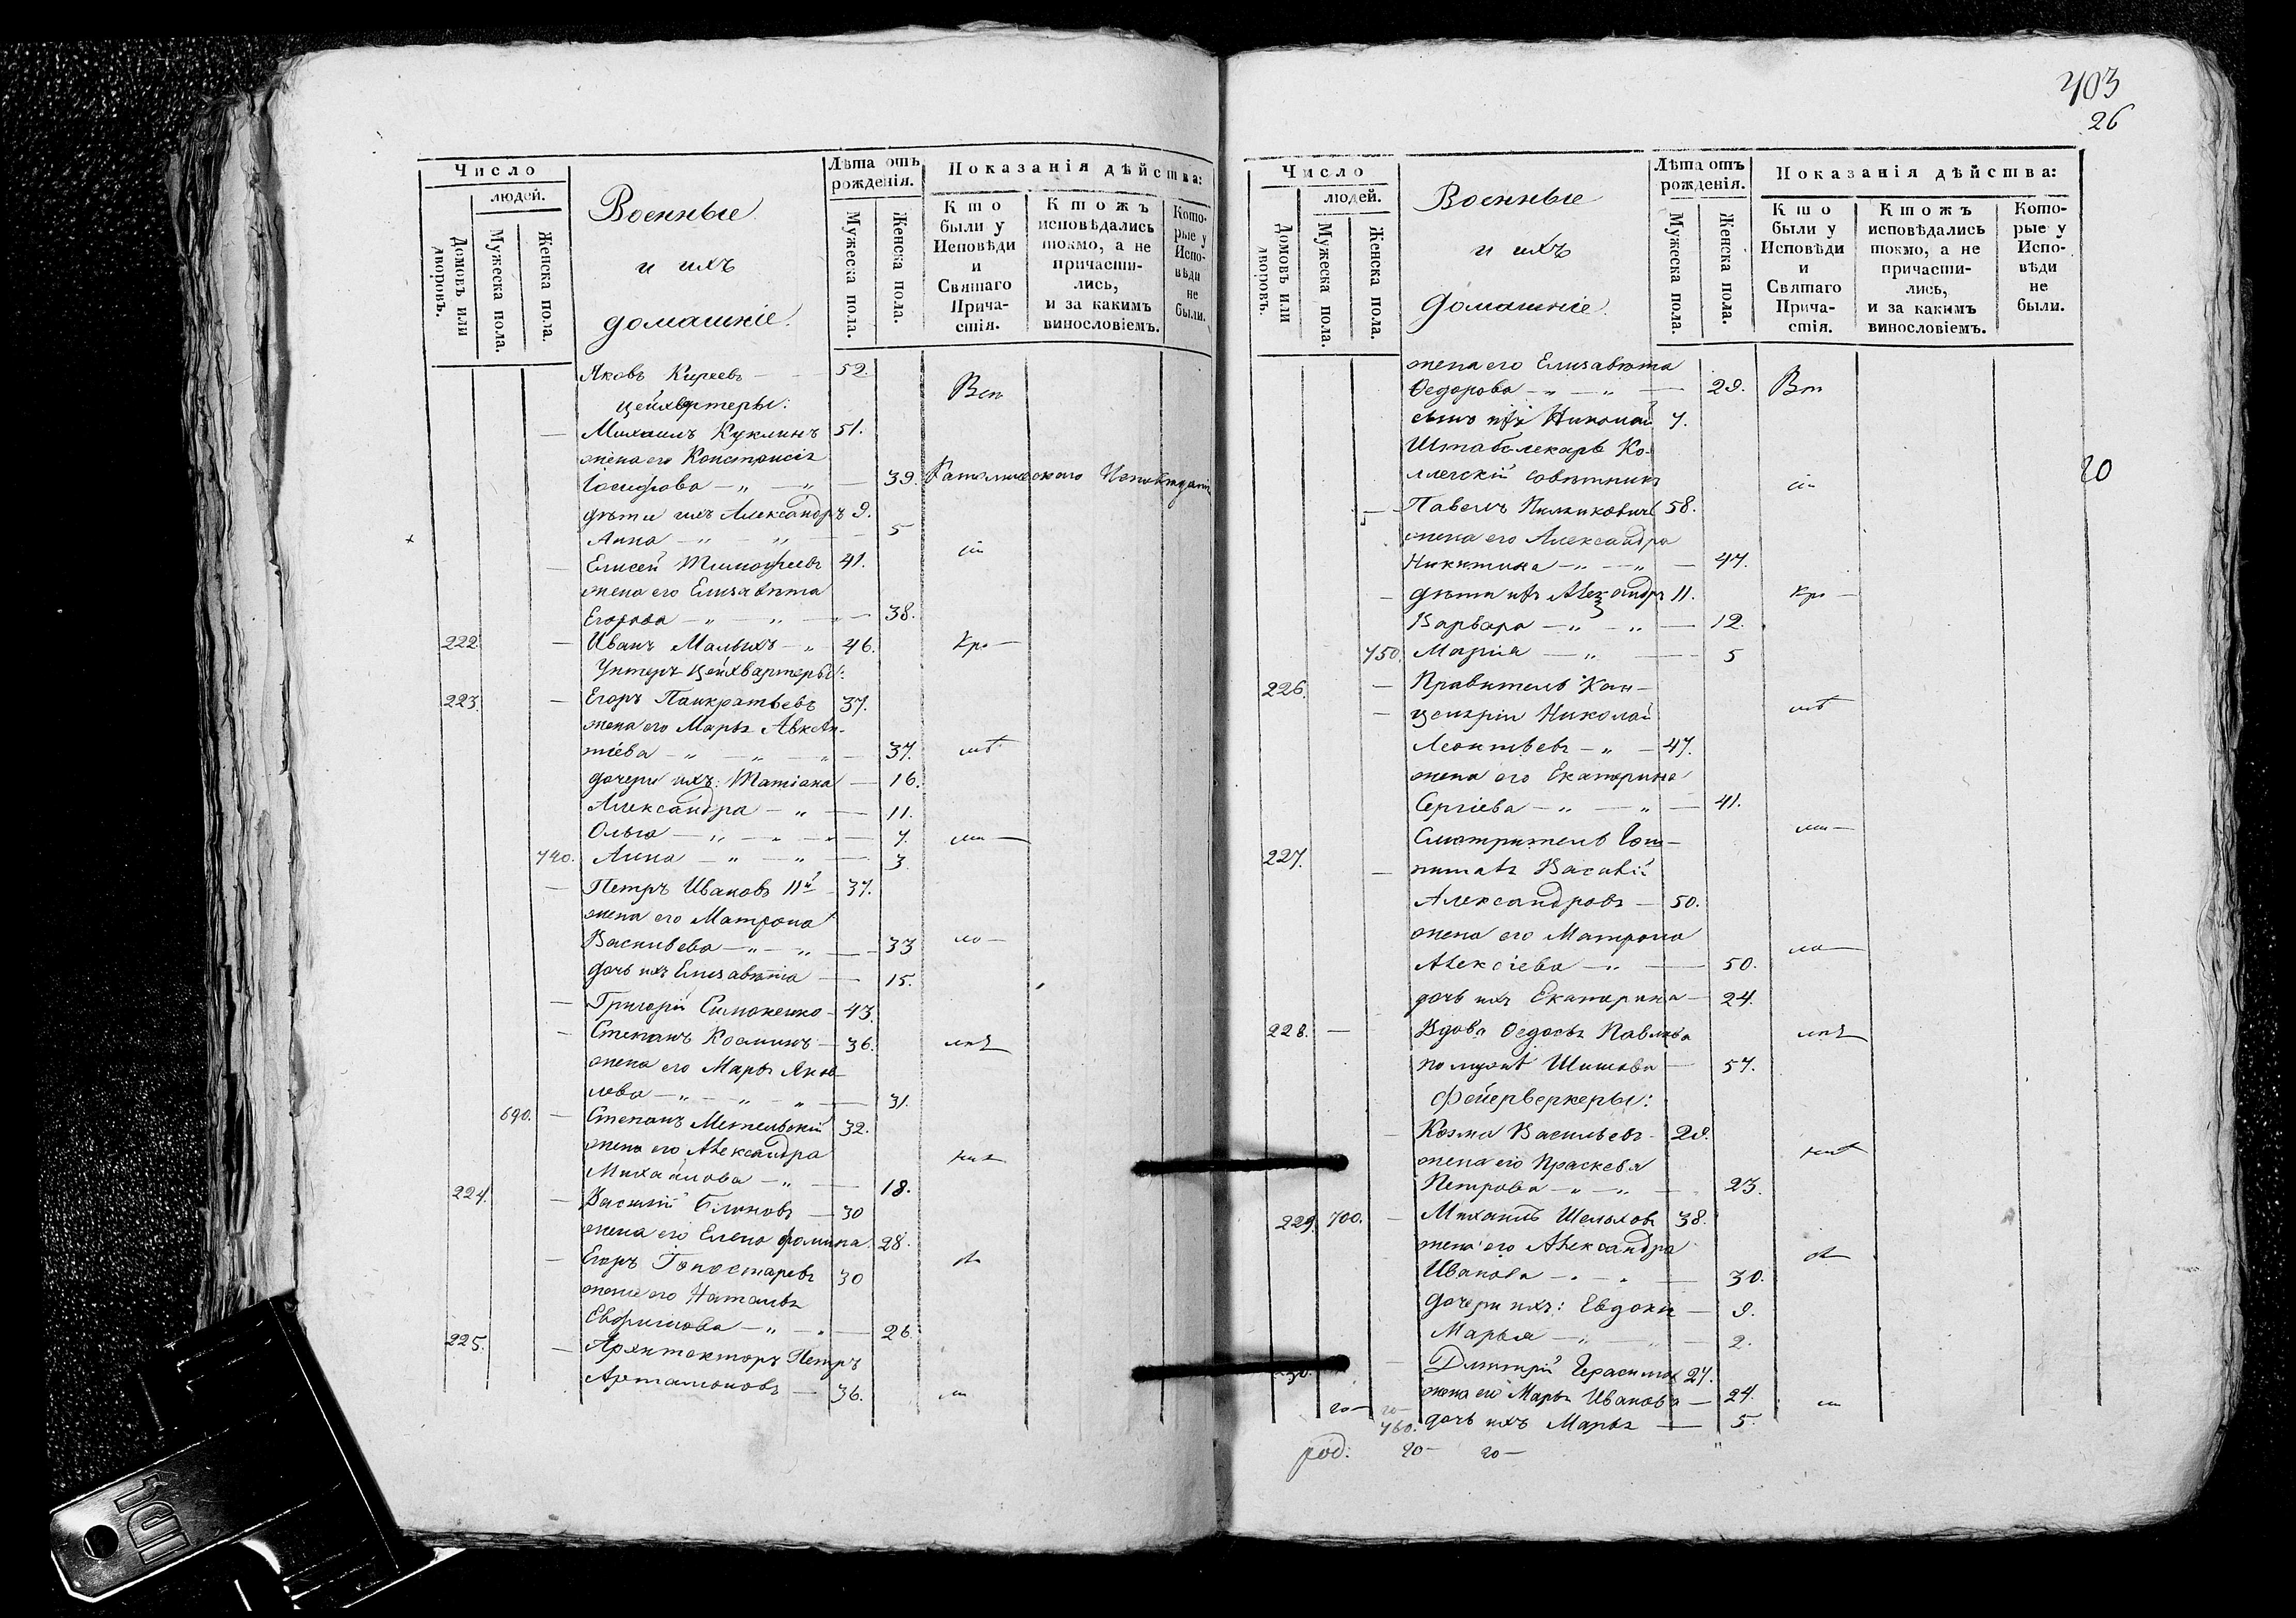 Число
людей.
Домовъ или дворовъ.
Мужеска пола.
Женска пола.
Военные
и ихъ
домашніе.
Лѣта отъ
рожденія.
Мужеска пола.
Женска пола.
Показанія дѣйства:
Кто
были у
Исповѣди
и
Святаго
Прича-
стія.
Ктожъ
исповѣдались
токмо, а не
причасти-
лись,
и за какимъ
винословіемъ.
Кото-
рые у
Испо-
вѣди
не
были.
Яковъ Киреевъ 52.
Цейхвартеры:
Михаилъ Куклинъ 51.
жена его
Іосифова 39. Католическаго Исповѣданія
дѣти ихъ Александръ 9.
Анна 5
Елисей Тимофеевъ 41.
жена его Елизавѣта
Егорова 38.
222. Иванъ Малыхъ 46.
Унтеръ Цейхвартеры:
223. Егоръ Панкратьевъ 37.
жена его Марья Авксен-
тіева 37.
дочери ихъ: Татіана 16.
Александра 11.
Ольга 7.
740. Анна 3.
Петръ Ивановъ IIй 37.
жена его Матрона
Васильева 33
дочь ихъ Елизавѣта 15.
Григорій Симоненко 43.
Степанъ Косминъ 36.
жена его Марья Яков-
лева 31.
690. Степанъ Метельскій 32.
жена его Александра
Михайлова 18.
224. Василій Блиновъ 30
жена его Елена Фомина 28.
Егоръ 30
жена его Наталья
Евфимова 26.
225. Архитекторъ Петръ
Артамоновъ 36.
403
26
Число
людей.
Домовъ или дворовъ.
Мужеска пола.
Женска пола.
Военные
и ихъ
домашніе.
Лѣта отъ
рожденія.
Мужеска пола.
Женска пола.
Показанія дѣйства:
Кто
были у
Исповѣди
и
Святаго
Прича-
стія.
Ктожъ
исповѣдались
токмо, а не
причасти-
лись,
и за какимъ
винословіемъ.
Кото-
рые у
Испо-
вѣди
не
были.
жена его Елизавѣта
Ѳедорова 29.
сынъ ихъ Николай 7.
Штабслекарь Ко-
ллежскій Совѣтникъ
20
Павелъ 58.
жена его Александра
Никитина 47.
дѣти ихъ Александръ 11.
Варвара 12.
750. Марія 5
226. Правитель Кан-
целяріи Николай
Леонтьевъ 47.
жена его Екатерина
Сергіева 41.
Смотритель Гош-
227. питаля Василій
Александровъ 50.
жена его Матрона
Алексіева 50.
дочь ихъ Екатерина 24.
228. Вдова Ѳедосья Павлова
по мужѣ Шишова 57.
Фейерверкеры:
Козма Васильевъ 29.
жена его Праскевія
Петрова 23.
229. 700. Михаилъ Шелховъ 38.
жена его Александра
Иванова 30.
дочери ихъ: Евдокія 9.
Марья 2.
Дмитрій Герасимов 27.
жена его Марья Иванова 24.
760. дочь ихъ Марья 5.